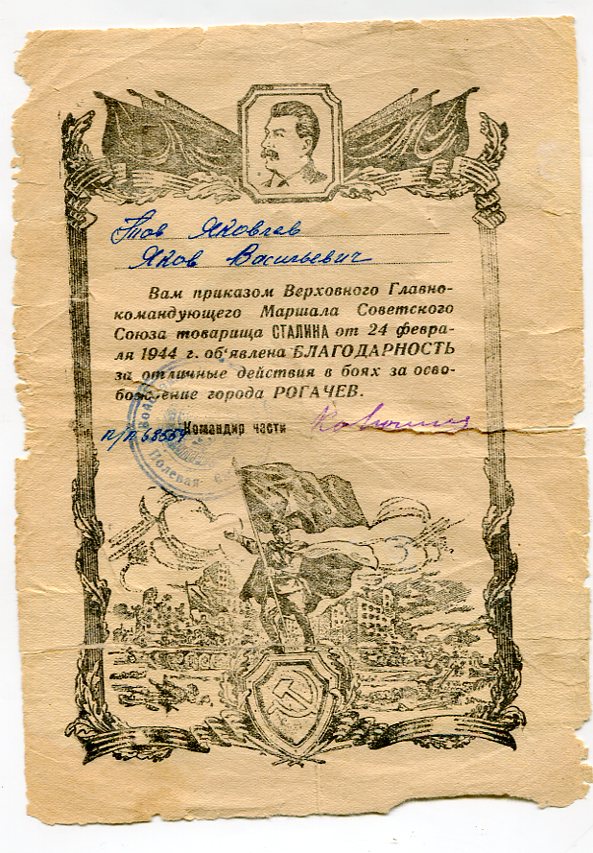 Тов Яковлев
Яков Васильевич
Вам приказом Верховного Главно-
командующего Маршала Советского
Союза товарища СТАЛИНА от 24 февра-
ля 1944 г. об'явлена БЛАГОДАРНОСТЬ
за отличные действия в боях за осво-
бождение города РОГАЧЕВ.
Командир части
п/п
Полевая